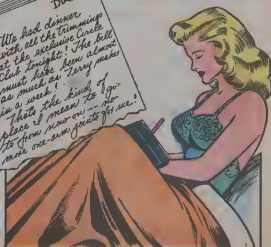 We had dinner
with all the trimmings
at the exclusive Circle
Club tonight! The bill
must have been almost
as much as Terry makes
in a week!
That's the kind of
place I mean to go
to from now on -- no
more one-arm joints for me!